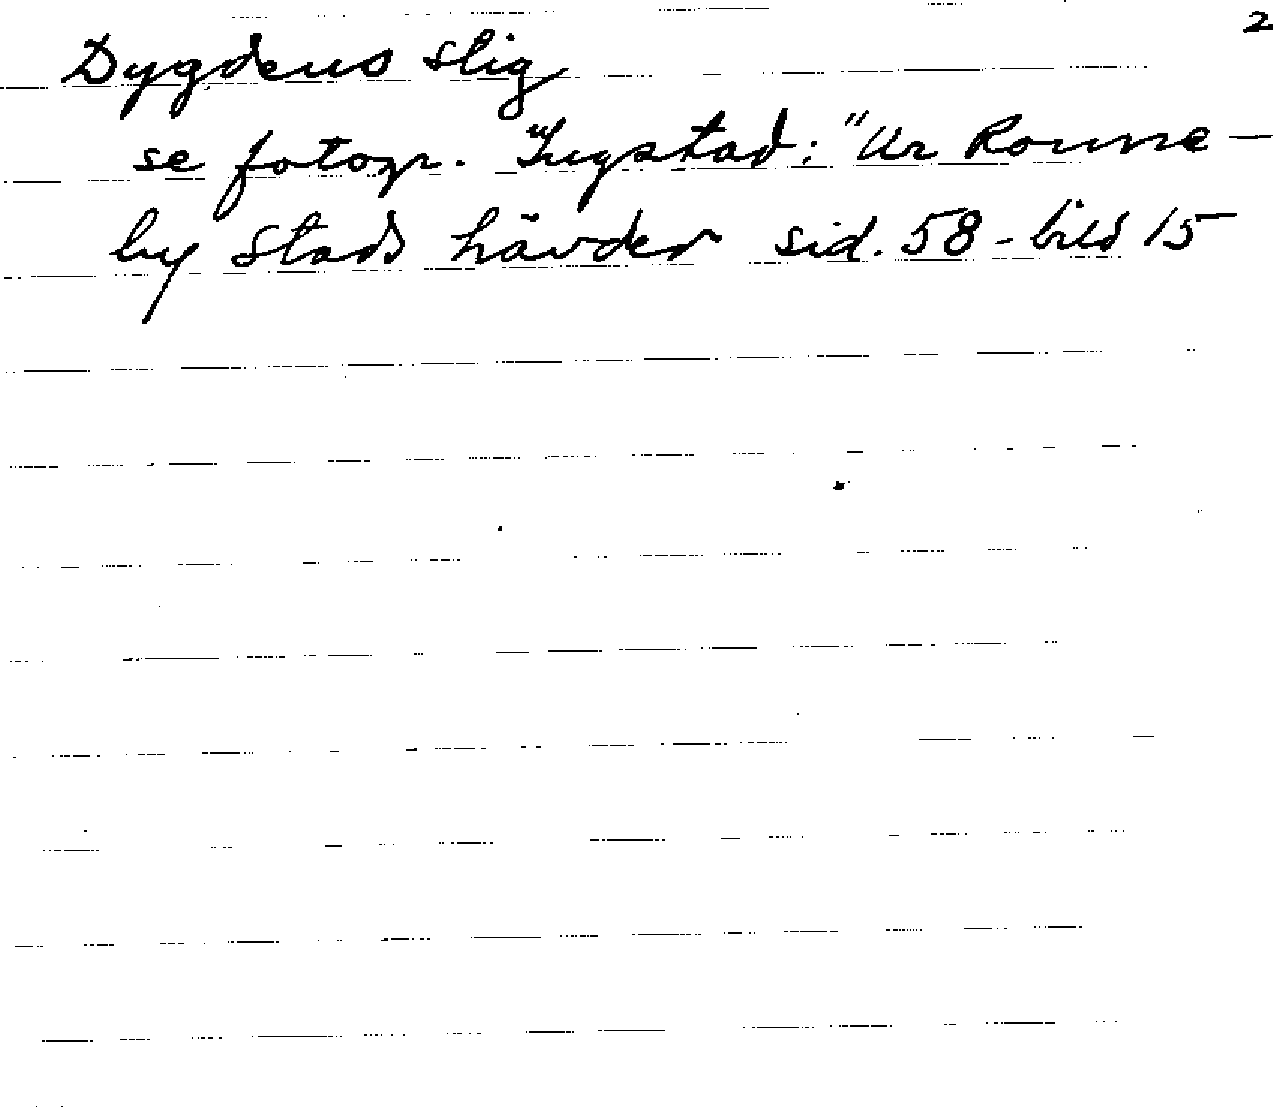 2
Dygdens stig
se fotogr. Ingstad: "Ur Ronne-
by stads hävder sid. 58 - bild 15